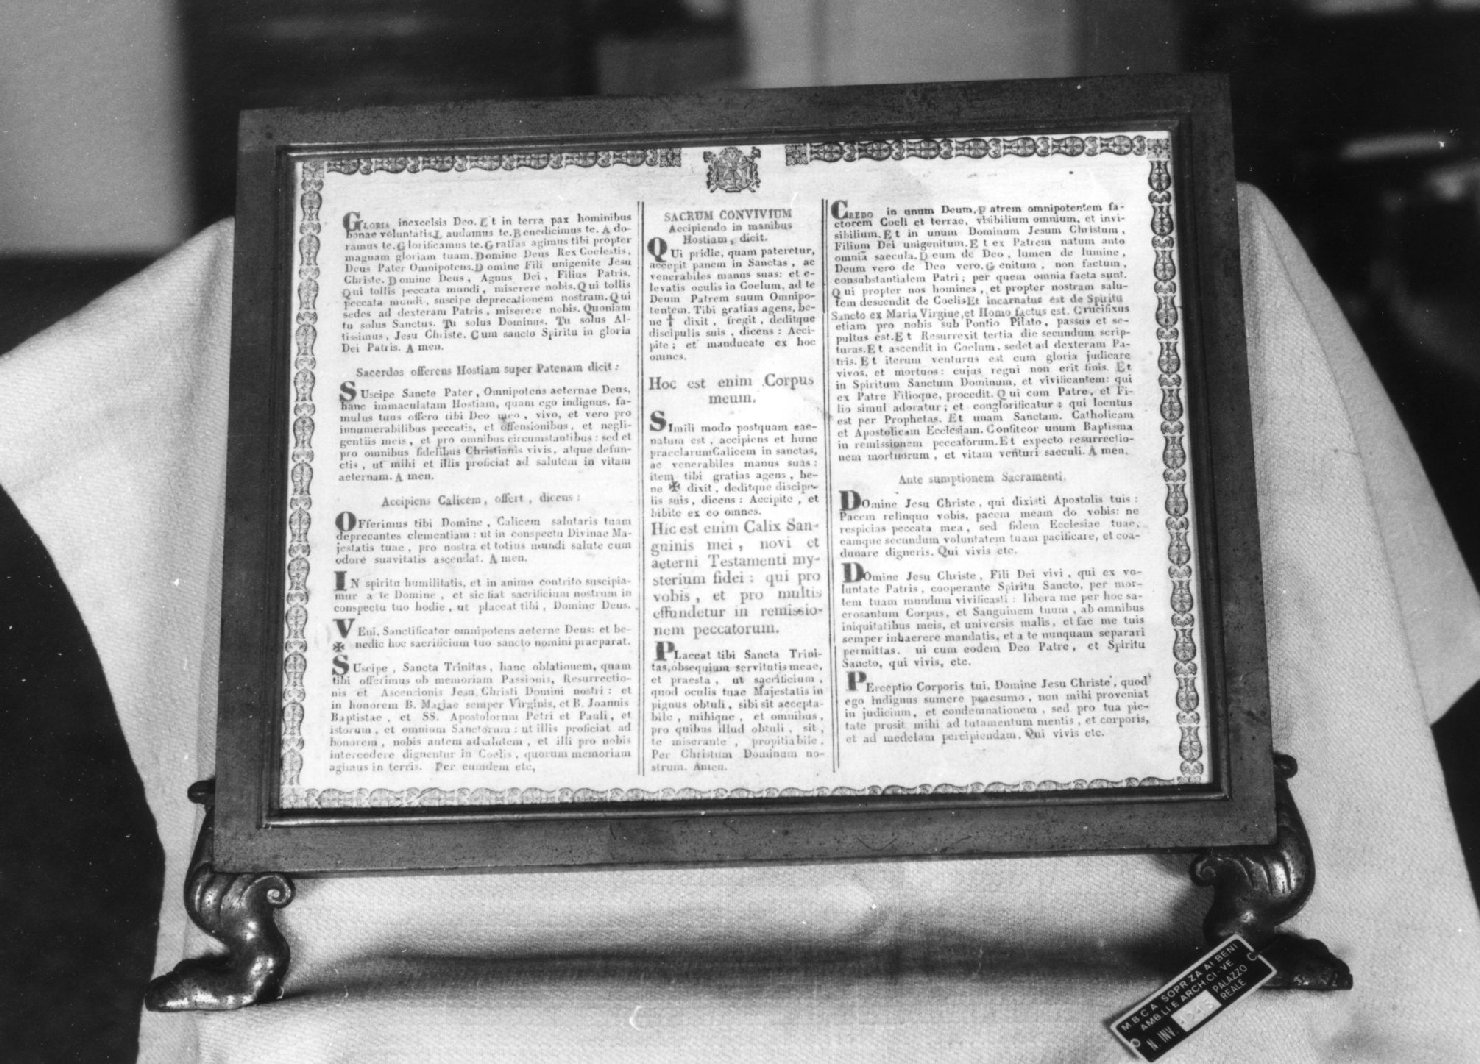 GLORIA inexcelsis Deo. Et in terra pax hominibus
bonae voluntatis. Laudamus te. Benedicimus te. Ado-
ramus te. Glorificamus te. Gratias agimus tibi propter
magnam gloriam tuam. Domine Deus Rex Coelestis,
Deus Pater Omnipotens. Domine Fili unigenite Jesu
Christe. Domine Deus, Agnus Dei, Filius Patris.
Qui tollis peccata mundi, miserere nobis. Qui tollis
peccata mundi, suscipe deprecationem nostram. Qui
sedes ad dexteram Patris, miserere nobis. Quoniam
tu solus Sanctus. Tu solus Dominus. Tu solus Al-
tissimus, Jesu Christe. Cum sancto Spiritu in gloria
Dei Patris. Amen.
Sacerdos offerens Hostiam super Patenam dicit:
SUscipe Sancte Pater, Omnipotens aeternae Deus,
hanc immaculatam Hostiam, quam ego indignus, fa-
mulus tuus offero tibi Deo meo, vivo, et vero pro
innumerabilibus peccatis, et offensionibus, et negli-
gentiis meis, et pro omnibus circumstantibus: sed et
pro omnibus fidelibus Christianis vivis, atque defun-
ctis, ut mihi et illis proficiat ad salutem in vitam
aeternam. Amen.
Accipiens Calicem, offert, dicens:
OFferimus tibi Domine, Calicem salutaris tuam
deprecantes clementiam: ut in conspectu Divinae Ma-
jestatis tuae, pro nostra et totius mundi salute cum
odore suavitatis ascendat. Amen.
IN spiritu humilitatis, et in animo contrito suscipia-
mur a te Domine, et sic fiat sacrificium nostrum in
conspectu tuo hodie, ut placeat tibi, Domine Deus.
VEni, Sanctificator omnipotens aeterne Deus: et be-
✠ nedic hoc sacrificium tuo sancto nomini praeparat.
SUscipe, Sancta Trinitas, hanc oblationem, quam
tibi offerimus ob memoriam Passionis, Resurrectio-
nis et Ascensionis Jesu Christi Domini nostri: et
in honorem B. Mariae semper Virginis, et B. Joannis
Baptistae, et SS. Apostolorum Petri et Pauli, et
istorum, et omnium Sanctorum: ut illis proficiat ad
honorem, nobis autem ad salutem, et illi pro nobis
intercedere dignentur in Coelis, quorum memoriam
agimus in terris. Per eumdem etc,
SACRUM CONVIVIUM
Accipiendo in manibus
Hostiam, dicit.
QUi pridie, quam pateretur,
accepit panem in Sanctas, ac
venerabiles manus suas: et e-
levatis oculis in Coelum, ad te
Deum Patrem suum Omnipo-
tentem. Tibi gratias agens, be-
ne † dixit, fregit, deditque
discipulis suis, dicens: Acci-
pite; et manducate ex hoc
omnes.
Hoc est enim Corpus
meum.
SImili modo postquam cae-
natum est, accipiens et hunc
praeclarum Calicem in sanctas,
ac venerabiles manus suas:
item tibi gratias agens, be-
ne ✠ dixit, deditque discipu-
lis suis, dicens: Accipite, et
bibite ex eo omnes.
Hic est enim Calix San-
guinis mei, novi et
aeterni Testamenti my-
sterium fidei: qui pro
vobis, et pro multis
effundetur in remissio-
nem peccatorum.
PLaceat tibi Sancta Trini-
tas, obsequium servitutis meae,
et praesta, ut sacrificium,
quod oculis tuae Majestatis in
pignus obtuli, sibi sit accepta-
bile, mihique, et omnibus,
pro quibus illud obtuli, sit,
te miserante, propitiabile.
Per Christum Dominum no-
strum. Amen.
CREDO in unum Deum. Patrem omnipotentem fa-
ctorem Coeli et terrae, visibilium omnium, et invi-
sibilium. Et in unum Dominum Jesum Christum,
Filium Dei unigenitum. Et ex Patrem natum ante
omnia saecula. Deum de Deo, lumen de lumine,
Deum vero de Deo vero. Genitum, non factum,
consubstantialem Patri; per quem omnia facta sunt.
Qui propter nos homines, et propter nostram salu-
tem descendit de Coelis Et incarnatus est de Spiritu
Sancto ex Maria Virgine, et Homo factus est. Crucifixus
etiam pro nobis sub Pontio Pilato, passus et se-
pultus est. Et Resurrexit tertia die secundum scrip-
turas. Et ascendit in Coelum, sedet ad dexteram Pa-
tris. Et iterum venturus est cum gloria judicare
vivos, et mortuos: cujus regni non erit finis. Et
in Spiritum Sanctum Dominum, et vivificantem: qui
ex Patre Filioque, procedit. Qui cum Patre, et Fi-
lio simul adoratur; et conglorificatur: qui locutus
est per Prophetas. Et unam Sanctam. Catholicam
et Apostolicam Ecclesiam. Confiteor unum Baptisma
in remissionem peccatorum. Et expecto resurrectio-
nem mortuorum, et vitam venturi saeculi. Amen.
Ante sumptionem Sacramenti.
DOmine Jesu Christe, qui dixisti Apostolis tuis:
Pacem relinquo vobis, pacem meam do vobis: ne
respicias peccata mea, sed fidem Ecclesiae tuae,
eamque secundum voluntatem tuam pacificare, et coa-
dunare digneris. Qui vivis etc.
DOmine Jesu Christe, Fili Dei vivi, qui ex vo-
luntate Patris, cooperante Spiritu Sancto, per mor-
tem tuam mundum vivificasti: libera me per hoc sa-
crosantum Corpus, et Sanguinem tuum, ab omnibus
iniquitatibus meis, et universis malis, et fac me tuis
semper inhaerere mandatis, et a te nunquam separari
permittas. ui cum eodem Deo Patre, et Spiritu
Sancto, qui vivis, etc.
PErceptio Corporis tui, Domine Jesu Christe, quod
ego indignus sumere praesumo, non mihi proveniat
in judicium, et condemnationem, sed pro tua pie-
tate prosit mihi ad tutamentum mentis, et corporis,
et ad medelam percipiendam. Qui vivis etc.
M.B.C.A. SOPR.ZA AI BENI
AMB.LI E ARCH.CI
PALAZZO
REALE
N INV.